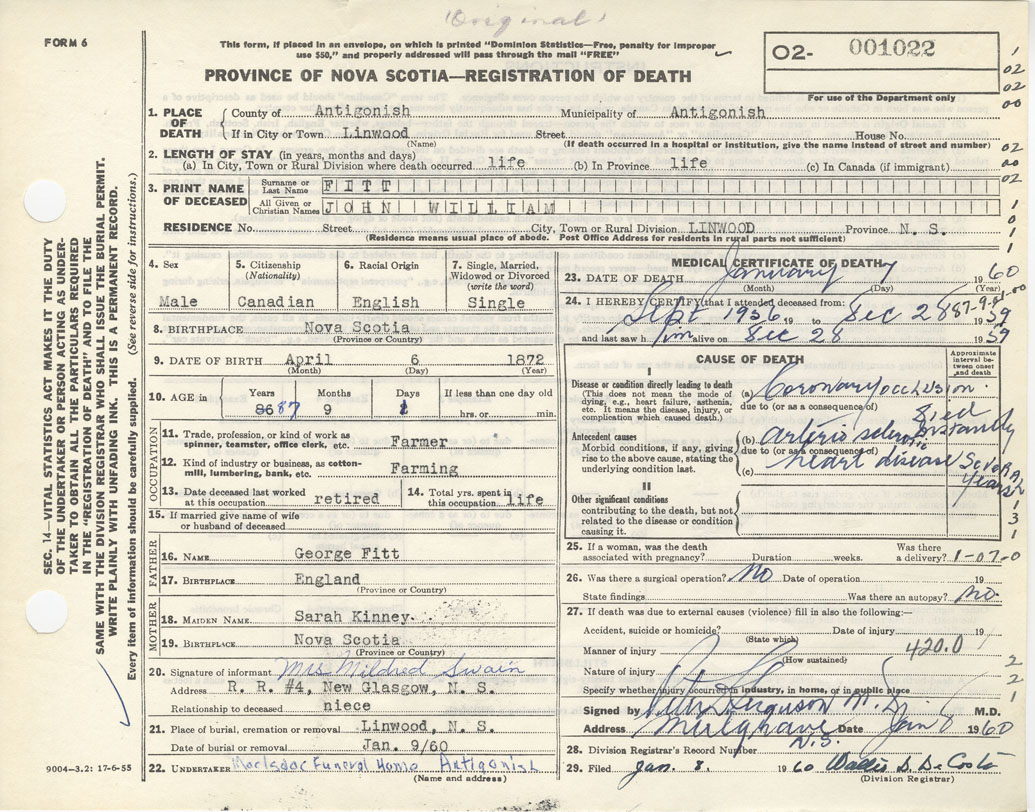 Original
FORM 6
This form, if placed in an envelope, on which is printed "Dominion Statistics—Free, penalty for improper
use $50," and properly addressed will pass through the mail "FREE"
02- 001022
For use of the Department only
PROVINCE OF NOVA SCOTIA—REGISTRATION OF DEATH
1. PLACE OF DEATH
County of Antigonish Municipality of Antigonish
If in City or Town Linwood Street House No.
(Name) (If death occurred in a hospital or institution, give the name instead of street and number)
2. LENGTH OF STAY (in years, months and days)
(a) In City, Town or Rural Division where death occurred life (b) In Province life (c) In Canada (if immigrant)
3. PRINT NAME OF DECEASED
Surname or Last Name FITT
All Given or Christian Names JOHN WILLIAM
RESIDENCE No. Street City, Town or Rural Division LINWOOD Province N. S.
(Residence means usual place of abode. Post Office Address for residents in rural parts not sufficient)
4. Sex
Male
5. Citizenship (Nationality)
Canadian
6. Racial Origin
English
7. Single, Married, Widowed or Divorced (write the word)
Single
8. BIRTHPLACE Nova Scotia
(Province or Country)
9. DATE OF BIRTH April 6 1872
(Month) (Day) (Year)
10. AGE in Years Months Days If less than one day
86 87 9 1 hrs. or min.
OCCUPATION
11. Trade, profession, or kind of work as spinner, teamster, office clerk, etc. Farmer
12. Kind of industry or business, as cotton-mill, lumbering, bank, etc. Farming
13. Date deceased last worked at this occupation retired
14. Total yrs. spent in this occupation life
15. If married give name of wife or husband of deceased
FATHER
16. NAME George Fitt
17. BIRTHPLACE England
(Province or Country)
MOTHER
18. MAIDEN NAME Sarah Kinney
19. BIRTHPLACE Nova Scotia
(Province or Country)
20. Signature of informant Mrs Mildred Swain
Address R. R. #4, New Glasgow, N. S.
Relationship to deceased niece
21. Place of burial, cremation or removal Linwood, N. S.
Date of burial or removal Jan. 9/60
22. UNDERTAKER Funeral Home Antigonish
(Name and address)
MEDICAL CERTIFICATE OF DEATH
23. DATE OF DEATH January 7 1960
(Month) (Day) (Year)
24. I HEREBY CERTIFY that I attended deceased from:
Sept 1956 19 to Dec 28 1959
87-9-01-00
and last saw him alive on Dec 28 1959
CAUSE OF DEATH
Approximate interval between onset and death
I
Disease or condition directly leading to death
(This does not mean the mode of dying, e.g., heart failure, asthenia, etc. It means the disease, injury, or complication which caused death.)
(a) Coronary occlusion
due to (or as a consequence of)
Died instantly
Antecedent causes
Morbid conditions, if any, giving rise to the above cause, stating the underlying condition last.
(b) arterio sclerotic
due to (or as a consequence of)
heart disease Several Years
(c)
II
Other significant conditions
contributing to the death, but not related to the disease or condition causing it.
25. If a woman, was the death associated with pregnancy? Duration weeks. Was there a delivery? 1-07-0
26. Was there a surgical operation? No Date of operation 19
State findings Was there an autopsy? No.
27. If death was due to external causes (violence) fill in also the following:—
Accident, suicide or homicide? Date of injury 19
(State which)
Manner of injury 420.0
(How sustained)
Nature of injury
Specify whether injury occurred in industry, in home, or in public place
Signed by Ferguson M.D. M.D.
Address Mulgrave N.S. Date Jan 8 1960
28. Division Registrar's Record Number
29. Filed Jan. 8. 1960 D. DeCoste
(Division Registrar)
9004-3.2: 17-6-55
SEC. 14—VITAL STATISTICS ACT MAKES IT THE DUTY
OF THE UNDERTAKER OR PERSON ACTING AS UNDER-
TAKER TO OBTAIN ALL THE PARTICULARS REQUIRED
IN THE "REGISTRATION OF DEATH" AND TO FILE THE
SAME WITH THE DIVISION REGISTRAR WHO SHALL ISSUE THE BURIAL PERMIT.
WRITE PLAINLY WITH UNFADING INK. THIS IS A PERMANENT RECORD.
Every item of information should be carefully supplied. (See reverse side for instructions.)
1
02
02
00
02
00
02
1
0
1
1
1
3
1
2
2
1